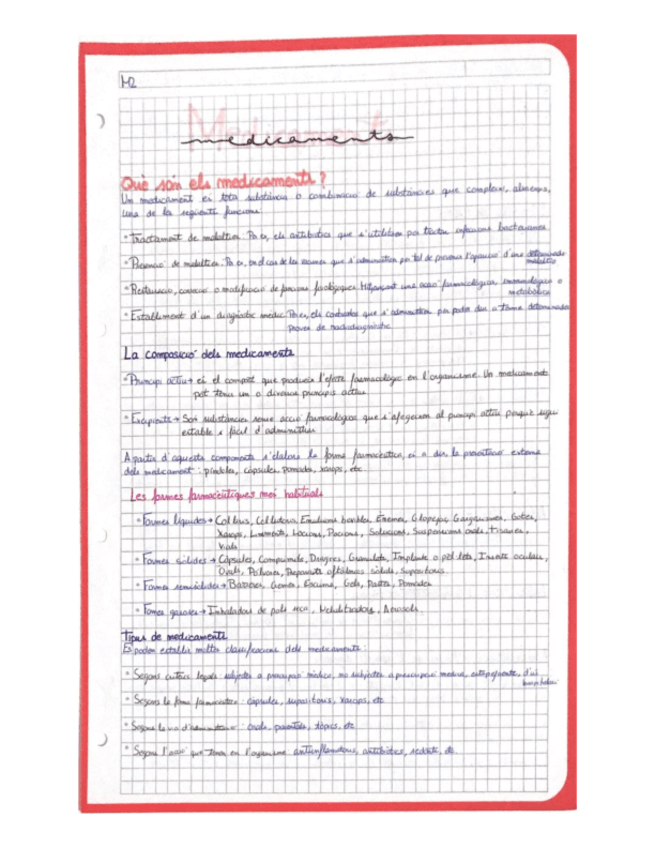 M2
Medicaments
medicaments
Què són els medicaments?
Un medicament és tota substància o combinació de substàncies que compleix, almenys,
una de les següents funcions
• Tractament de malalties. Per ex, els antibiòtics que s'utilitzen per tractar infeccions bacterianes
• Prevenció de malalties. Per ex, en el cas de les vacunes que s'administren per tal de prevenir l'aparició d'una determinada
malaltia
• Restauració, correcció o modificació de funcions fisiològiques. Mitjançant una acció farmacològica, immunològica o
metabòlica
• Establiment d'un diagnòstic mèdic. Per ex, els contrastos que s'administren per poder dur a terme determinades
proves de radiodiagnòstic
La composició dels medicaments
• Principi actiu → és el compost que produeix l'efecte farmacològic en l'organisme. Un medicament
pot tenir un o diversos principis actius
• Excipients → Són substàncies sense acció farmacològica que s'afegeixen al principi actiu perquè sigui
estable i fàcil d'administrar
A partir d'aquests components s'elabora la forma farmacèutica, és a dir, la presentació externa
dels medicament: píndoles, càpsules, pomades, xarops, etc
Les formes farmacèutiques més habituals
• Formes líquides → Col·liris, Col·lutoris, Emulsions, Enemes, Gargarismes, Gotes,
Xarops, Liniments, Locions, Pocions, Solucions, Suspensions orals, Tisanes,
Vials
• Formes sòlides → Càpsules, Comprimits, Dragees, Granulats, Implants o pèl·lets, Inserts oculars,
Òvuls, Pólvores, Preparats oftàlmics sòlids, Supositoris
• Formes semisòlides → Bàlsams, Cremes, Escuma, Gels, Pastes, Pomades
• Formes gasoses → Inhaladors de pols seca, Nebulitzadors, Aerosols.
Tipus de medicaments
Es poden establir moltes classificacions dels medicaments:
• Segons criteris legals: subjectes a prescripció mèdica, no subjectes a prescripció mèdica, estupefaents, d'ús
hospitalari
• Segons la forma farmacèutica: càpsules, supositoris, xarops, etc
• Segons la via d'administració: orals, parentals, tòpics, etc
• Segons l'acció que tenen en l'organisme: antiinflamatoris, antibiòtics, sedants, etc.